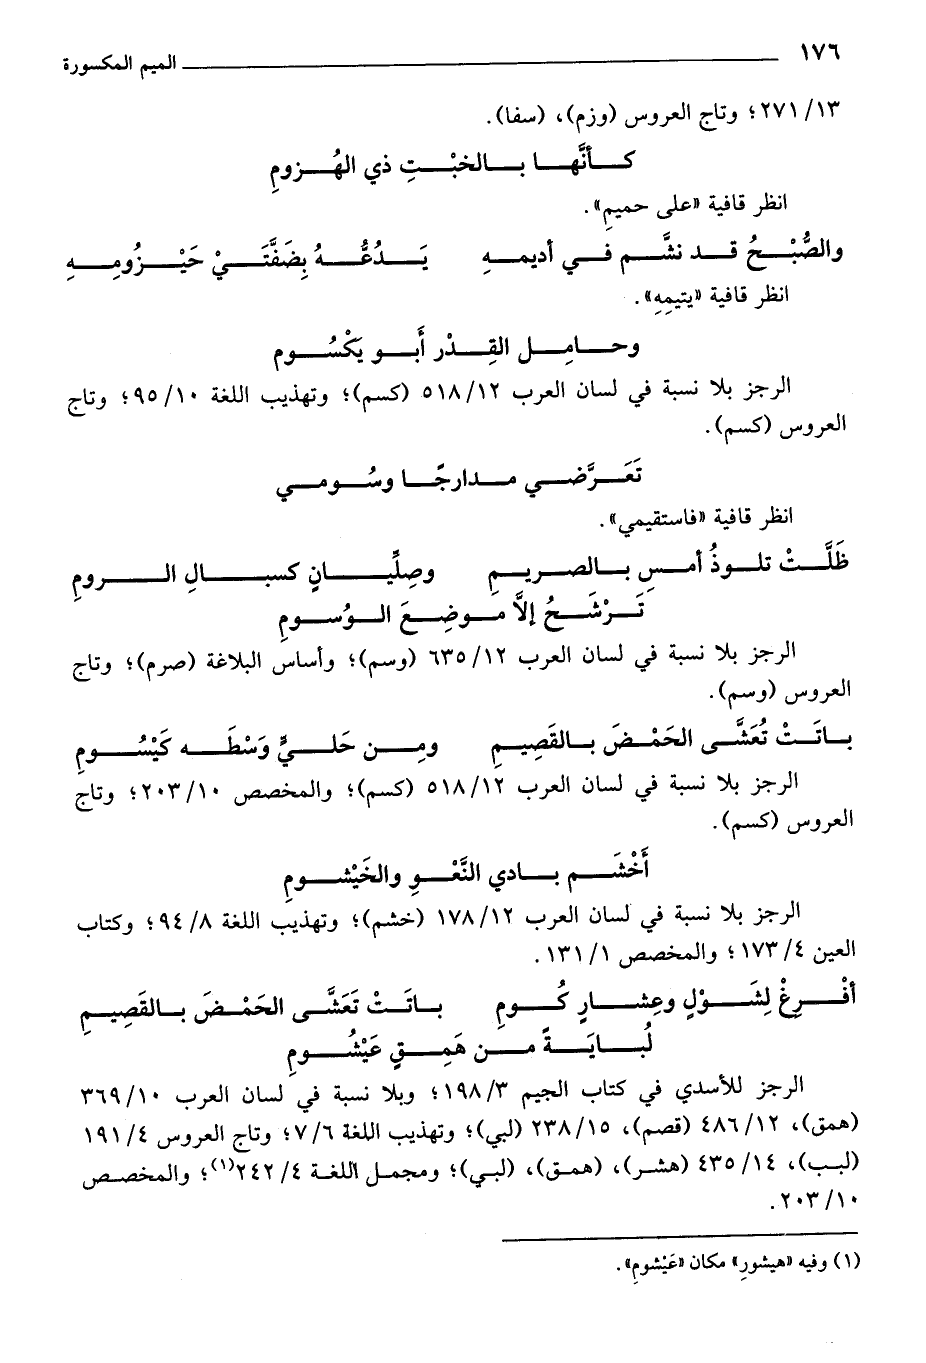 ١٧٦ الميم المكسورة
١٣/ ٢٧١؛ وتاج العروس (وزم)، (سفا).
كأنَّها بالخبْتِ ذي الهُزومِ
انظر قافية «على حميمِ».
والصُّبْحُ قد نشَّم في أديمهِ يَدُعُّهُ بِضَفَّتَيْ حَيْزُومِهِ
انظر قافية «يتيمِهِ».
وحامِل القِدْر أَبو يَكْسُوم
الرجز بلا نسبة في لسان العرب ١٢/ ٥١٨ (كسم)؛ وتهذيب اللغة ١٠/ ٩٥؛ وتاج
العروس (كسم).
تَعَرَّضي مدارجًا وسُومي
انظر قافية «فاستقيمي».
ظَلَّتْ تلوذُ أمسِ بالصريمِ وصِلِّيانٍ كسبالِ الرومِ
تَرْشَحُ إلاَّ موضِعَ الوُسومِ
الرجز بلا نسبة في لسان العرب ١٢/ ٦٣٥ (وسم)؛ وأساس البلاغة (صرم)؛ وتاج
العروس (وسم).
باتَتْ تُعَشَّى الحَمْضَ بالقَصِيمِ ومِن حَليٍّ وَسْطَه كَيْسُومِ
الرجز بلا نسبة في لسان العرب ١٢/ ٥١٨ (كسم)؛ والمخصص ١٠/ ٢٠٣؛ وتاج
العروس (كسم).
أَخْشَم بادي النَّعْوِ والخَيْشومِ
الرجز بلا نسبة في لسان العرب ١٢/ ١٧٨ (خشم)؛ وتهذيب اللغة ٨/ ٩٤؛ وكتاب
العين ٤/ ١٧٣؛ والمخصص ١/ ١٣١.
أفْرِغْ لِشَوْلٍ وعِشارٍ كُومِ باتَتْ تَعَشَّى الحَمْضَ بالقَصِيمِ
لُبايَةً من هَمِقٍ عَيْشُومِ
الرجز للأسدي في كتاب الجيم ٣/ ١٩٨؛ وبلا نسبة في لسان العرب ١٠/ ٣٦٩
(همق)، ١٢/ ٤٨٦ (قصم)، ١٥/ ٢٣٨ (لبي)؛ وتهذيب اللغة ٦/ ٧؛ وتاج العروس ٤/ ١٩١
(لبب)، ١٤/ ٤٣٥ (هشر)، (همق)، (لبي)؛ ومجمل اللغة ٤/ ٢٤٢(١)؛ والمخصص
١٠/ ٢٠٣.
(١) وفيه «هيشورِ» مكان «عَيْشومِ».